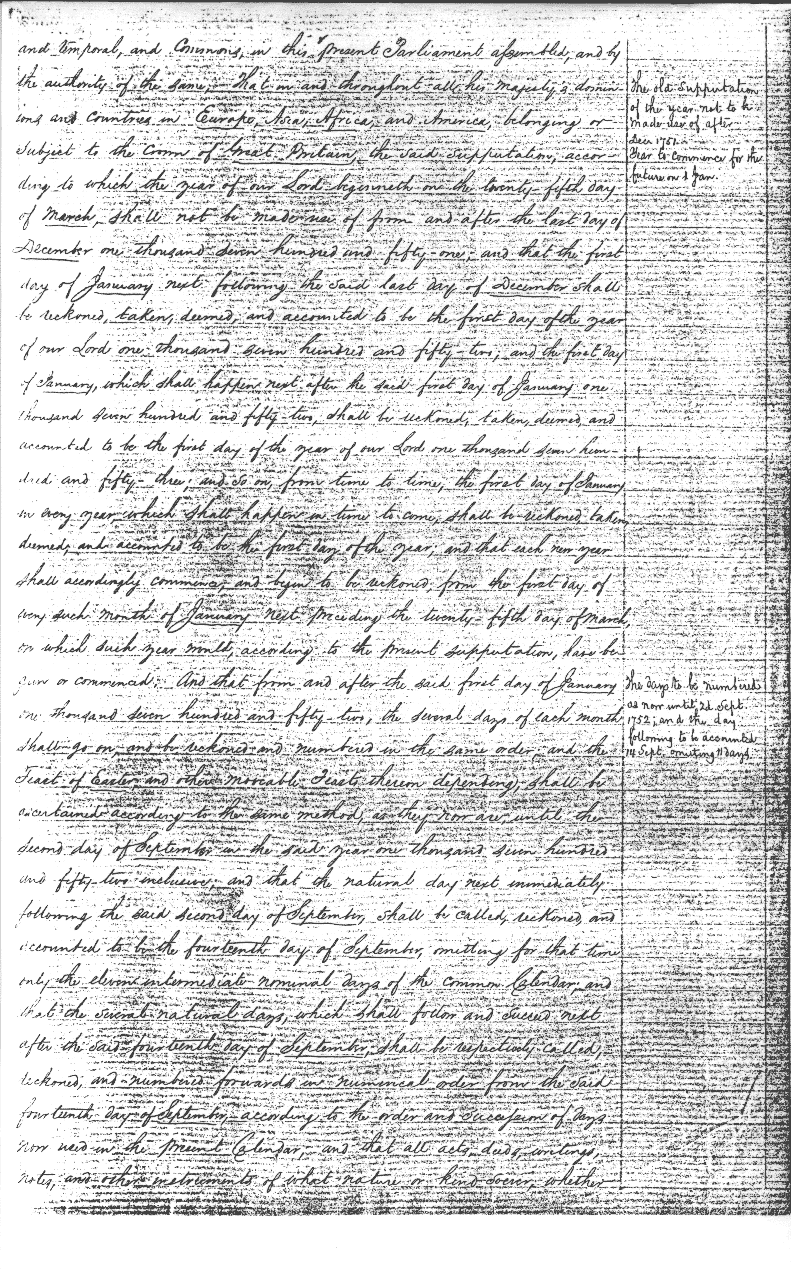 and temporal, and Commons, in this present Parliament assembled, and by
the authority of the same; That in and throughout all his majesty's domin-
ions and Countries in Europe, Asia, Africa, and America, belonging or
subject to the Crown of Great Britain, the said supputation, accor-
ding to which the year of our Lord beginneth on the twenty-fifth day
of March, shall not be made use of from and after the last day of
December one thousand seven hundred and fifty-one; and that the first
day of January next following the said last day of December shall
be reckoned, taken, deemed, and accounted to be the first day of the year
of our Lord one thousand seven hundred and fifty-two; and the first day
of January, which shall happen next after the said first day of January one
thousand seven hundred and fifty-two, shall be reckoned, taken, deemed, and
accounted to be the first day of the year of our Lord one thousand seven hun-
dred and fifty-three; and so on, from time to time, the first day of January
in every year which shall happen in time to come, shall be reckoned, taken,
deemed, and accounted to be the first day of the year; and that each new year
shall accordingly commence, and begin to be reckoned, from the first day of
every such month of January next preceding the twenty-fifth day of March,
on which such year would, according to the present supputation, have be-
gun or commenced: And that from and after the said first day of January
one thousand seven hundred and fifty-two, the several days of each month
shall go on, and be reckoned and numbered in the same order; and the
Feast of Easter, and other moveable Feasts thereon depending, shall be
ascertained according to the same method, as they now are, until the
second day of September in the said year one thousand seven hundred
and fifty-two inclusive; and that the natural day next immediately
following the said second day of September, shall be called, reckoned, and
accounted to be the fourteenth day of September, omitting for that time
only the eleven intermediate nominal days of the common Calendar; and
that the several natural days, which shall follow and succeed next
after the said fourteenth day of September, shall be respectively called,
reckoned, and numbered forwards in numerical order from the said
fourteenth day of September, according to the order and succession of days
now used in the present Calendar; and that all acts, deeds, writings,
notes, and other instruments of what nature or kind soever, whether
The old Supputation
of the year not to be
made use of after
Dec. 1751.
Year to commence for the
future on 1 Jan.
The days to be numbered
as now until 2d Sept
1752; and the day
following to be accounted
14 Sept. omitting 11 days.